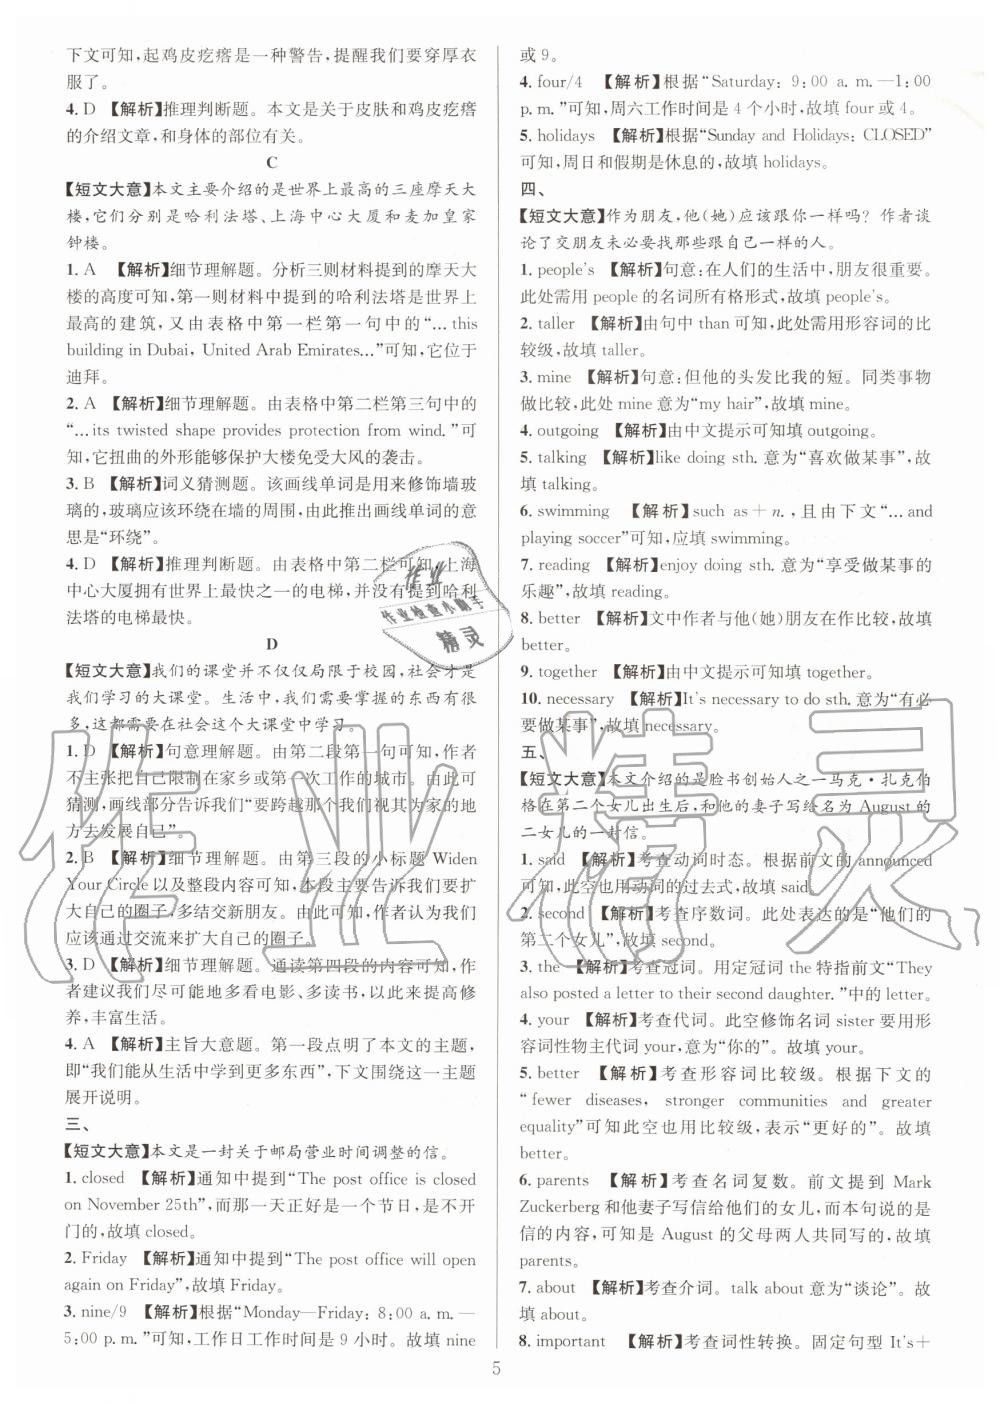 下文可知，起鸡皮疙瘩是一种警告，提醒我们要穿厚衣
服了。
4. D 【解析】推理判断题。本文是关于皮肤和鸡皮疙瘩
的介绍文章，和身体的部位有关。
C
【短文大意】本文主要介绍的是世界上最高的三座摩天大
楼，它们分别是哈利法塔、上海中心大厦和麦加皇家
钟楼。
1. A 【解析】细节理解题。分析三则材料提到的摩天大
楼的高度可知，第一则材料中提到的哈利法塔是世界上
最高的建筑，又由表格中第一栏第一句中的“…this
building in Dubai, United Arab Emirates…”可知，它位于
迪拜。
2. A 【解析】细节理解题。由表格中第二栏第三句中的
“…its twisted shape provides protection from wind.”可
知，它扭曲的外形能够保护大楼免受大风的袭击。
3. B 【解析】词义猜测题。该画线单词是用来修饰墙玻
璃的，玻璃应该环绕在墙的周围，由此推出画线单词的意
思是“环绕”。
4. D 【解析】推理判断题。由表格中第二栏可知，上海
中心大厦拥有世界上最快之一的电梯，并没有提到哈利
法塔的电梯最快。
D
【短文大意】我们的课堂并不仅仅局限于校园，社会才是
我们学习的大课堂。生活中，我们需要掌握的东西有很
多，这都需要在社会这个大课堂中学习。
1. D 【解析】句意理解题。由第二段第一句可知，作者
不主张把自己限制在家乡或第一次工作的城市。由此可
猜测，画线部分告诉我们“要跨越那个我们视其为家的地
方去发展自己”。
2. B 【解析】细节理解题。由第三段的小标题 Widen
Your Circle 以及整段内容可知，本段主要告诉我们要扩
大自己的圈子，多结交新朋友。由此可知，作者认为我们
应该通过交流来扩大自己的圈子。
3. D 【解析】细节理解题。通读第四段的内容可知，作
者建议我们尽可能地多看电影、多读书，以此来提高修
养，丰富生活。
4. A 【解析】主旨大意题。第一段点明了本文的主题，
即“我们能从生活中学到更多东西”，下文围绕这一主题
展开说明。
三、
【短文大意】本文是一封关于邮局营业时间调整的信。
1. closed 【解析】通知中提到“The post office is closed
on November 25th”，而那一天正好是一个节日，是不开
门的，故填 closed。
2. Friday 【解析】通知中提到“The post office will open
again on Friday”，故填 Friday。
3. nine/9 【解析】根据“Monday—Friday: 8:00 a. m.—
5:00 p. m.”可知，工作日工作时间是 9 小时。故填 nine
或 9。
4. four/4 【解析】根据“Saturday: 9:00 a. m.—1:00
p. m.”可知，周六工作时间是 4 个小时，故填 four或 4。
5. holidays 【解析】根据“Sunday and Holidays: CLOSED”
可知，周日和假期是休息的，故填 holidays。
四、
【短文大意】作为朋友，他（她）应该跟你一样吗？作者谈
论了交朋友未必要找那些跟自己一样的人。
1. people's 【解析】句意：在人们的生活中，朋友很重要。
此处需用 people 的名词所有格形式，故填 people's。
2. taller 【解析】由句中 than 可知，此处需用形容词的比
较级，故填 taller。
3. mine 【解析】句意：但他的头发比我的短。同类事物
做比较，此处 mine 意为“my hair”，故填 mine。
4. outgoing 【解析】由中文提示可知填 outgoing。
5. talking 【解析】like doing sth. 意为“喜欢做某事”，故
填 talking。
6. swimming 【解析】such as＋n.，且由下文“…and
playing soccer”可知，应填 swimming。
7. reading 【解析】enjoy doing sth. 意为“享受做某事的
乐趣”，故填 reading。
8. better 【解析】文中作者与他（她）朋友在作比较，故填
better。
9. together 【解析】由中文提示可知填 together。
10. necessary 【解析】It's necessary to do sth. 意为“有必
要做某事”，故填 necessary。
五、
【短文大意】本文介绍的是脸书创始人之一马克·扎克伯
格在第二个女儿出生后，和他的妻子写给名为 August 的
二女儿的一封信。
1. said 【解析】考查动词时态。根据前文的 announced
可知，此空也用动词的过去式，故填 said。
2. second 【解析】考查序数词。此处表达的是“他们的
第二个女儿”，故填 second。
3. the 【解析】考查冠词。用定冠词 the 特指前文“They
also posted a letter to their second daughter.”中的 letter。
4. your 【解析】考查代词。此空修饰名词 sister 要用形
容词性物主代词 your，意为“你的”。故填 your。
5. better 【解析】考查形容词比较级。根据下文的
“fewer diseases, stronger communities and greater
equality”可知此空也用比较级，表示“更好的”。故填
better。
6. parents 【解析】考查名词复数。前文提到 Mark
Zuckerberg 和他妻子写信给他们的女儿，而本句说的是
信的内容，可知是 August 的父母两人共同写的，故填
parents。
7. about 【解析】考查介词。talk about 意为“谈论”。故
填 about。
8. important 【解析】考查词性转换。固定句型 It's＋
5
作业
作业检查小助手
精灵
作业精灵